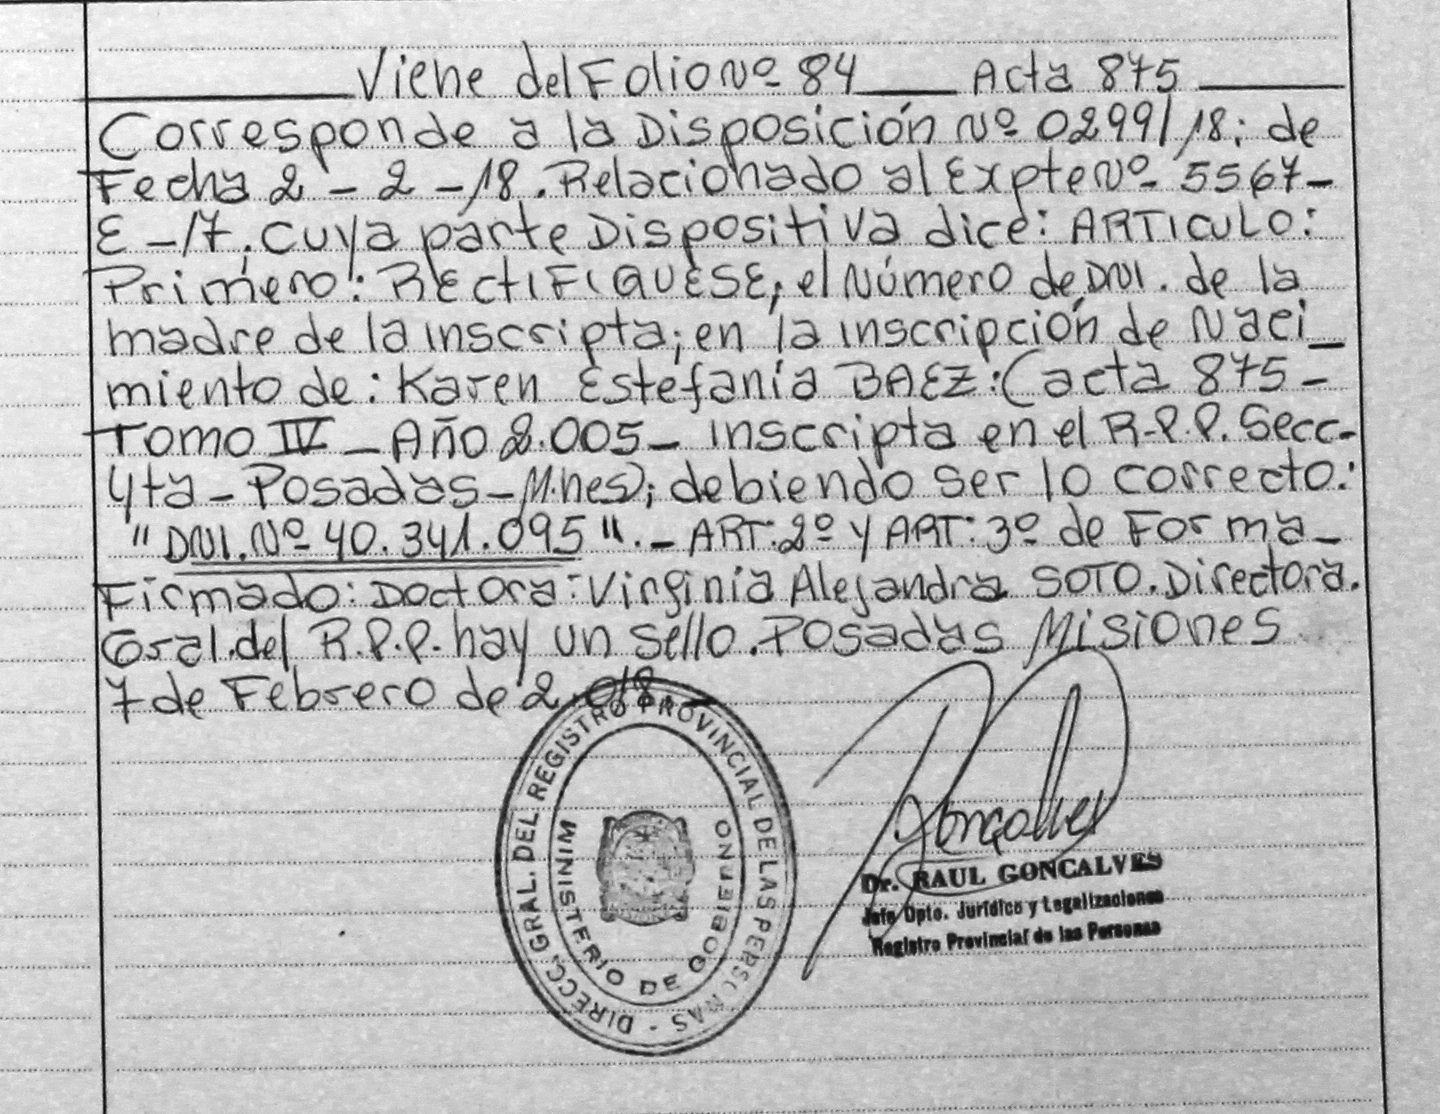 Viene del Folio Nº 84 ____ Acta 875
Corresponde a la Disposición Nº 0299/18; de
Fecha 2 - 2 - 18. Relacionado al Expte Nº 5567-
E - 17. cuya parte Dispositiva dice: ARTICULO:
Primero: RECtIFIQUESE, el Número de DNI. de la
madre de la inscripta; en la inscripción de Naci_
miento de: Karen Estefanía BAEZ: (acta 875 -
Tomo IV - Año 2.005 - inscripta en el R.P.P. Secc-
4ta - Posadas - M.nes); debiendo ser lo correcto:
" DNI. Nº 40.341.095 ". - ART: 2º y ART: 3º de Forma_
Firmado: Doctora: Virginia Alejandra SOTO. Directora.
Gral. del R.P.P. hay un sello. Posadas Misiones
7 de Febrero de 2.018 -
DIRECC. GRAL. DEL REGISTRO PROVINCIAL DE LAS PERSONAS -
MINISTERIO DE GOBIERNO
Gonçalves
Dr. RAUL GONCALVES
Jefe Dpto. Jurídico y Legalizaciones
Registro Provincial de las Personas